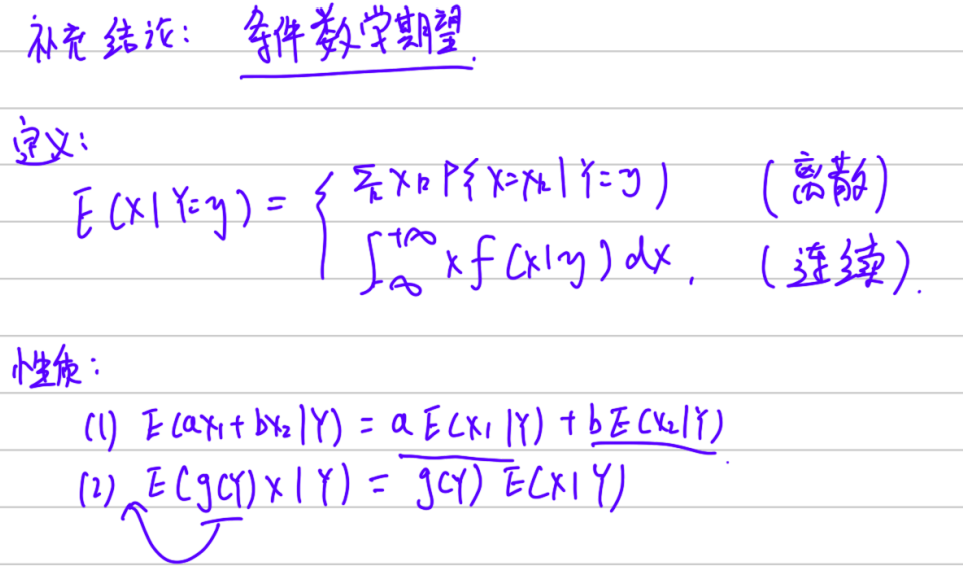 补充结论: 条件数学期望.
定义:
E(X|Y=y) = { ∑ₖ xₖ P{X=xₖ|Y=y) (离散)
∫₋∞⁺∞ x f(x|y) dx, (连续).
性质:
(1) E(aX₁+bX₂|Y) = a E(X₁|Y) + b E(X₂|Y).
(2) E(g(Y)X|Y) = g(Y) E(X|Y)